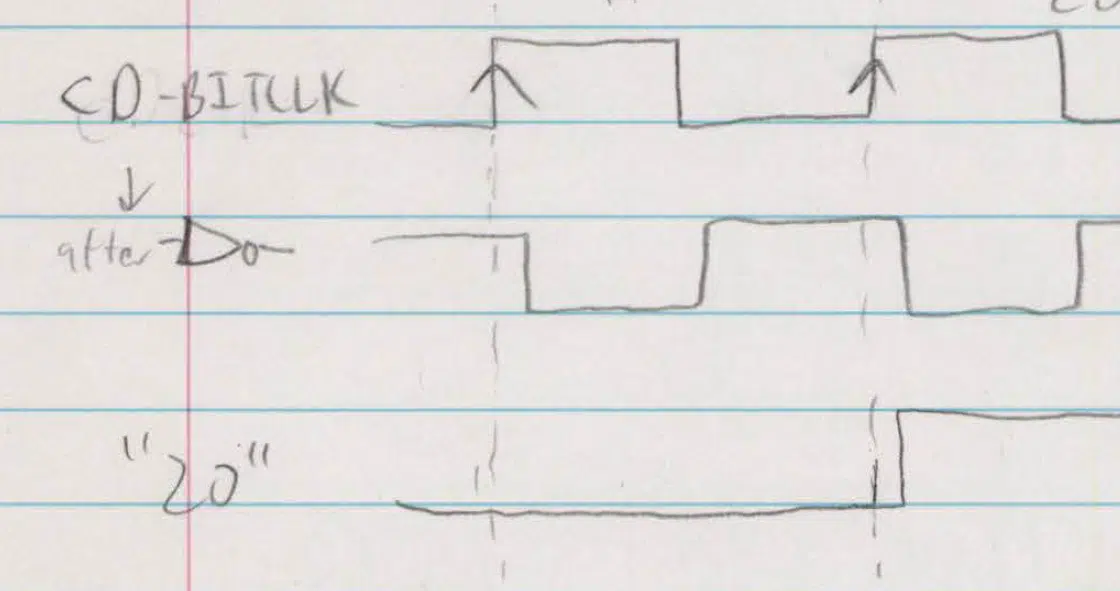 CD-BITCLK
after
"20"